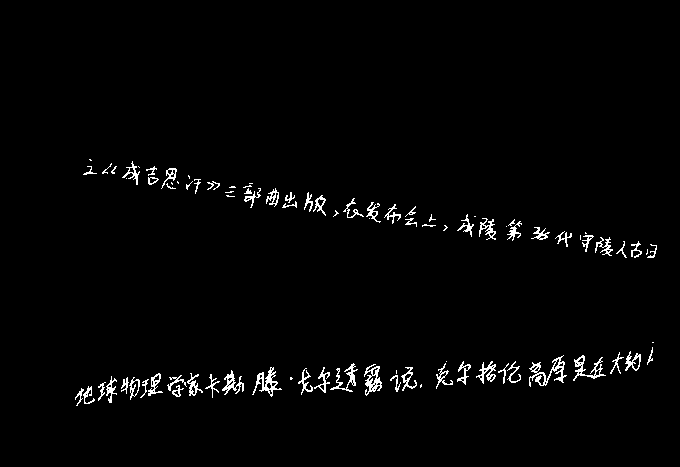 之《成吉思汗》三部曲出版,在发布会上,成陵第36代守陵人古日
地球物理学家卡斯滕·戈尔透露说,克尔格伦高原是在大约